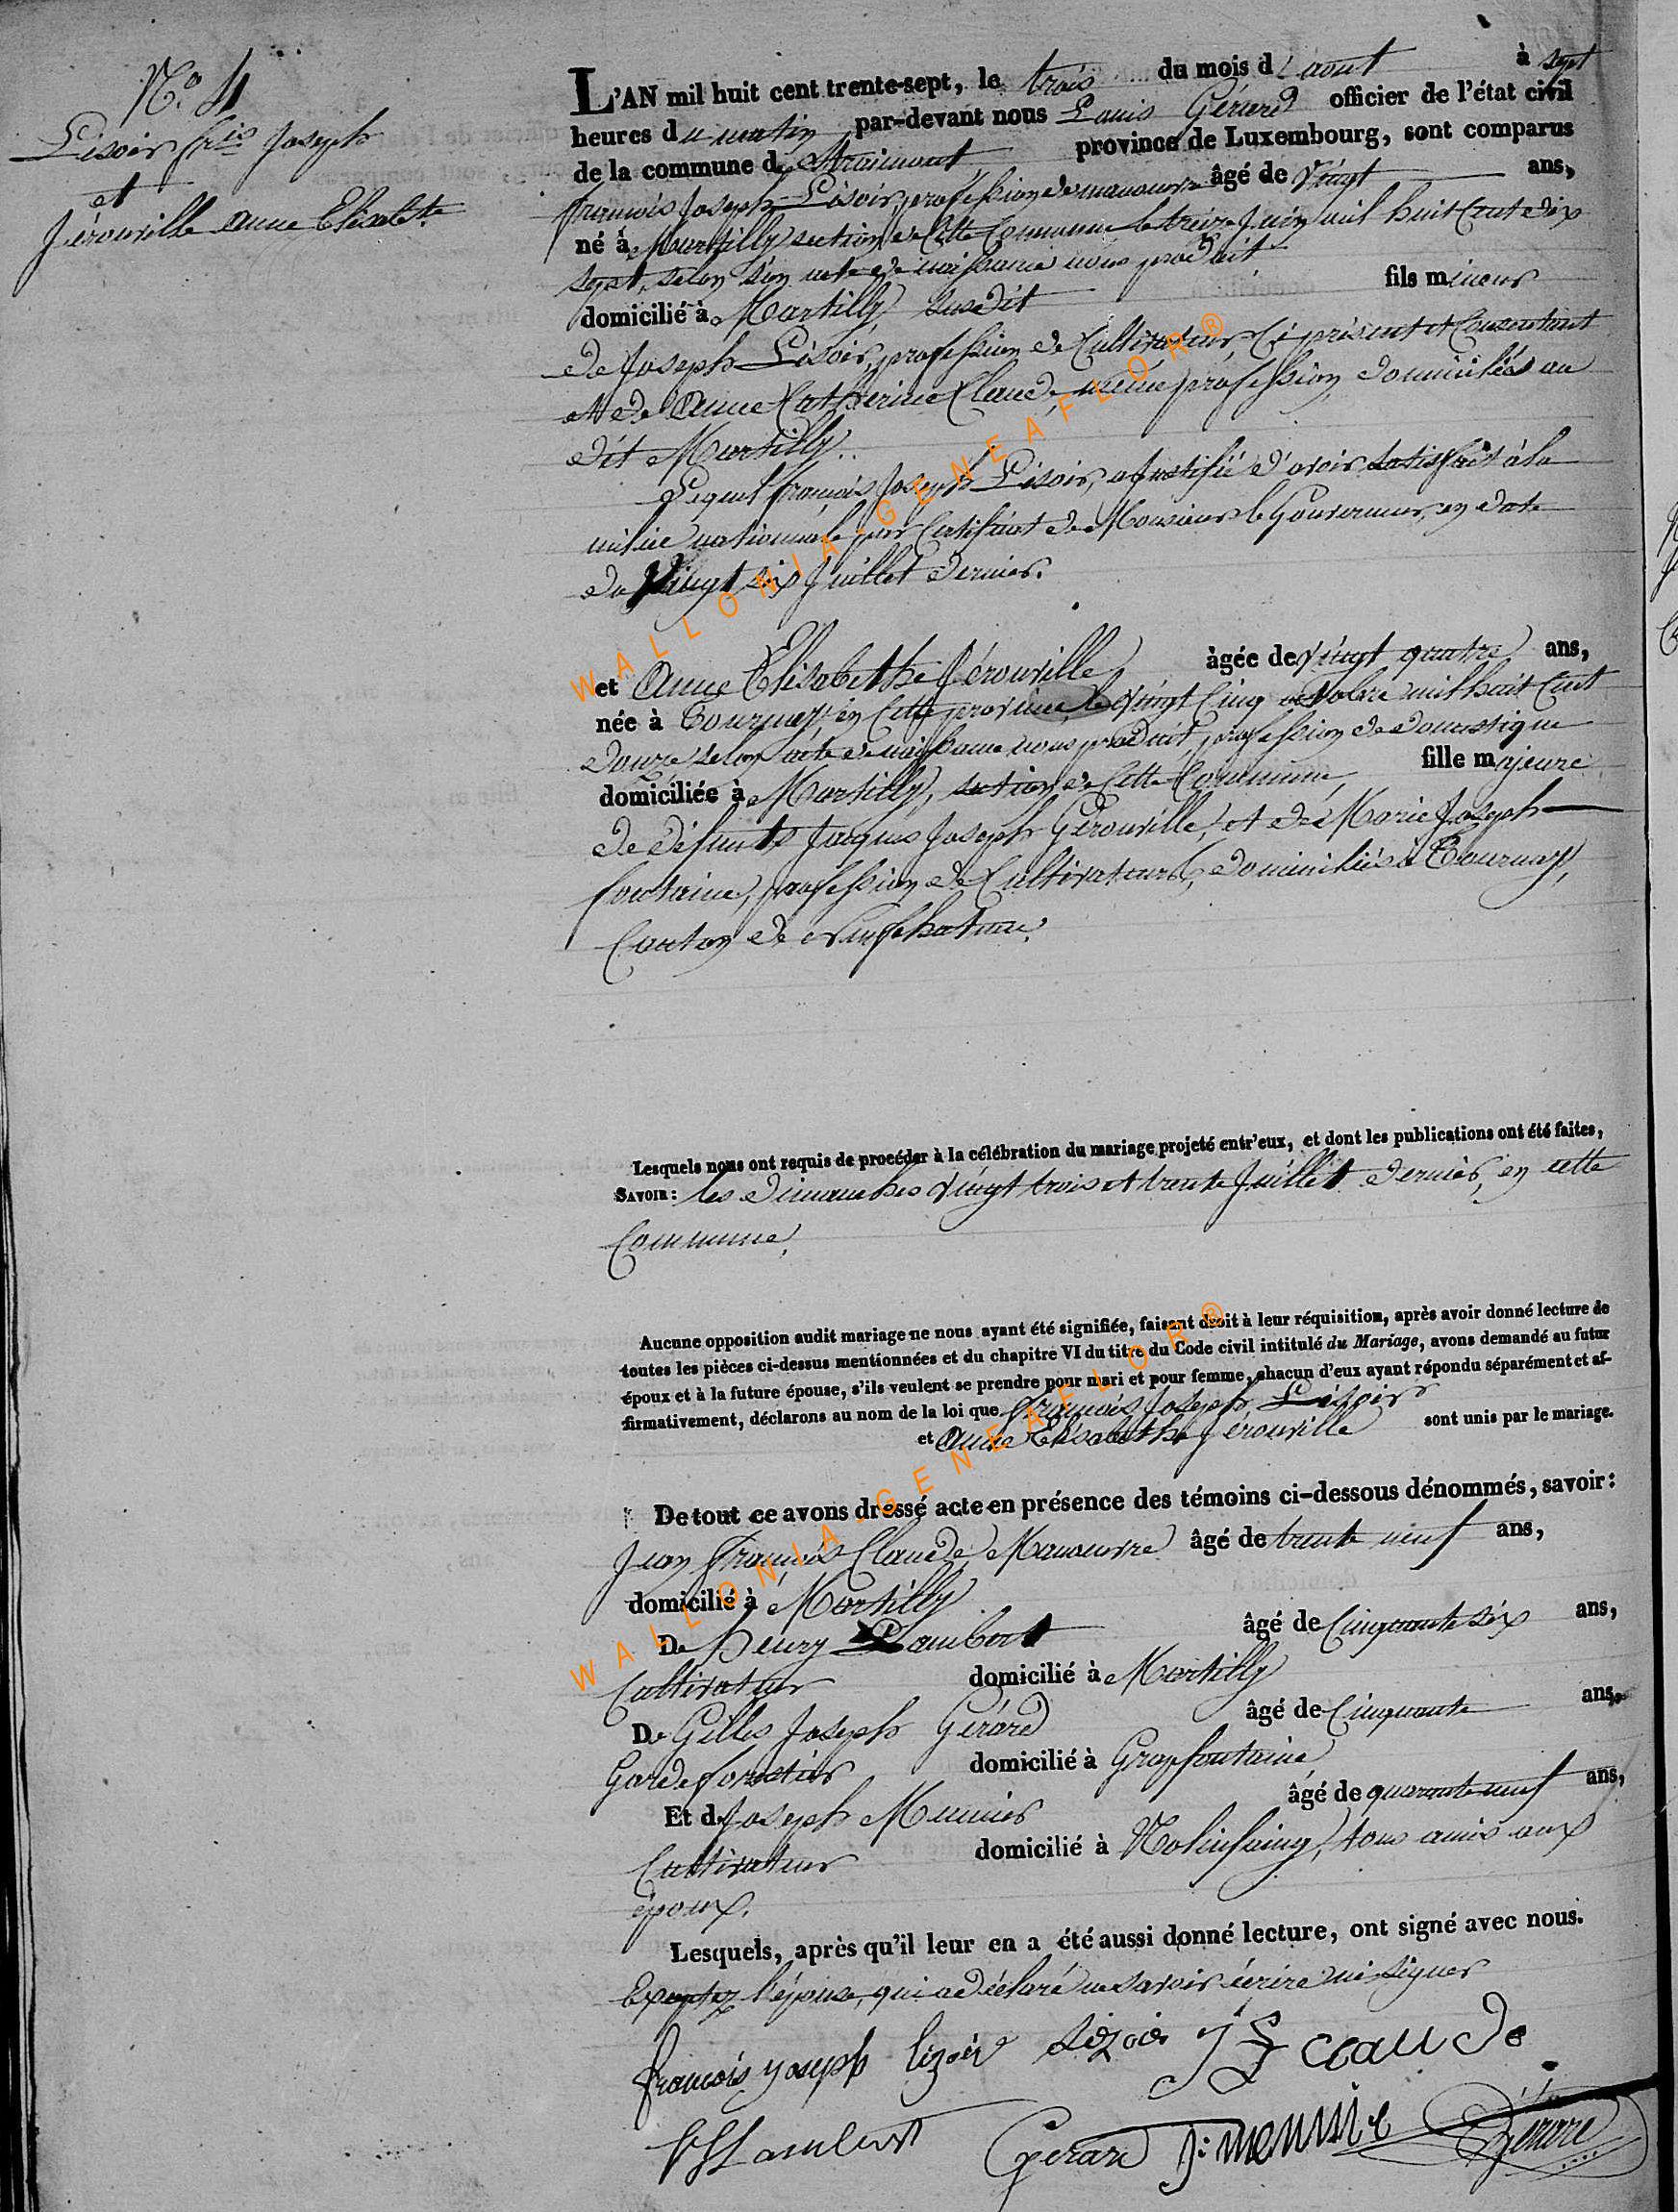 N.o 4
Lisoir fcis Joseph
et
Jérouville Anne Elisabte
L'AN mil huit cent trente-sept, le trois du mois d'aout à sept
heures du matin par-devant nous Louis Gérard officier de l'état civil
de la commune de Straimont province de Luxembourg, sont comparus
françois Joseph Lisoir, profession de manoeuvre âgé de vingt ans,
né à Martilly section de Cette Commune le treize Juin mil huit Cent dix
sept, selon son acte de naissance nous produit
domicilié à Martilly susdit fils mineur
de Joseph Lisoir, profession de Cultivateur, Ci présent et Consentant
et de Anne Catherine Claude, même profession, domiciliés au
dit Martilly.
Lequel françois Joseph Lisoir, a Justifié d'avoir satisfait à la
milice nationale par Certificat de Monsieur le Gouverneur, en date
du Vingt six Juillet dernier.
et Anne Elisabethe Jérouville âgée de vingt quatre ans,
née à Tournay, en Cette province, le vingt Cinq octobre mil huit Cent
douze selon l'acte de naissance nous produit, profession de domestique
domiciliée à Martilly, section de Cette Commune, fille majeure
de défunts Jacques Joseph Gérouville, et de Marie Joseph
fontaine, profession de Cultivateurs, domiciliés à Tournay,
Canton de Neufchateau.
Lesquels nous ont requis de procéder à la célébration du mariage projeté entr'eux, et dont les publications ont été faites,
SAVOIR: les dimanches vingt trois et trente Juillet dernier, en cette
Commune.
Aucune opposition audit mariage ne nous ayant été signifiée, faisant droit à leur réquisition, après avoir donné lecture de
toutes les pièces ci-dessus mentionnées et du chapitre VI du titre du Code civil intitulé du Mariage, avons demandé au futur
époux et à la future épouse, s'ils veulent se prendre pour mari et pour femme, chacun d'eux ayant répondu séparément et af-
firmativement, déclarons au nom de la loi que françois Joseph Lisoir
et Anne Elisabethe Jérouville sont unis par le mariage.
De tout ce avons dressé acte en présence des témoins ci-dessous dénommés, savoir:
Jean françois Claude, Manoeuvre âgé de trente neuf ans,
domicilié à Martilly
De henry Lambert âgé de Cinquante six ans,
Cultivateur domicilié à Martilly
De Gilles Joseph Gérard âgé de Cinquante ans,
Garde forestier domicilié à Grapfontaine
Et de Joseph Meunier âgé de quarante neuf ans,
Cultivateur domicilié à Molinfaing, tous amis aux
époux.
Lesquels, après qu'il leur en a été aussi donné lecture, ont signé avec nous.
Exceptez l'épouse, qui a déclaré ne savoir écrire ni signer
françois joseph lizoir Lizoir J F Claude
h Lambert Gérard J: meunie Gérard
WALLONIA-GENEAFLOR®
WALLONIA-GENEAFLOR®